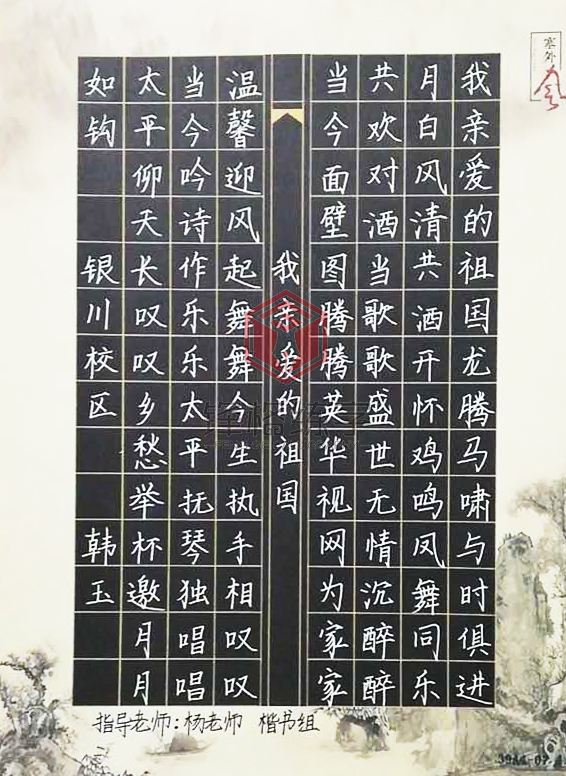 我亲爱的祖国龙腾马啸与时俱进
月白风清共酒开怀鸡鸣凤舞同乐
共欢对酒当歌歌盛世无情沉醉醉
当今面壁图腾腾英华视网为家家
我亲爱的祖国
温馨迎风起舞舞今生执手相叹叹
当今吟诗作乐乐太平抚琴独唱唱
太平仰天长叹叹乡愁举杯邀月月
如钩
银川校区
韩玉
指导老师:杨老师 楷书组
塞外